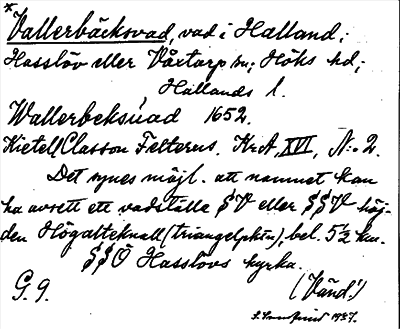 * Vallerbäcksvad, vad i Halland;
Hasslöv eller Våxtorp sn; Höks hd;
Hallands l.
Wallerbeksuad 1652.
Kietell Classon Felterus. Kr.A, XVI, N:o 2.
Det synes möjl. att namnet kan
ha avsett ett vadställe SV eller SSV höj-
den Högalteknall (triangelpkt), bel. 5½ km.
SSÖ Hasslövs kyrka.
G. 9. (Vänd!)
1927.